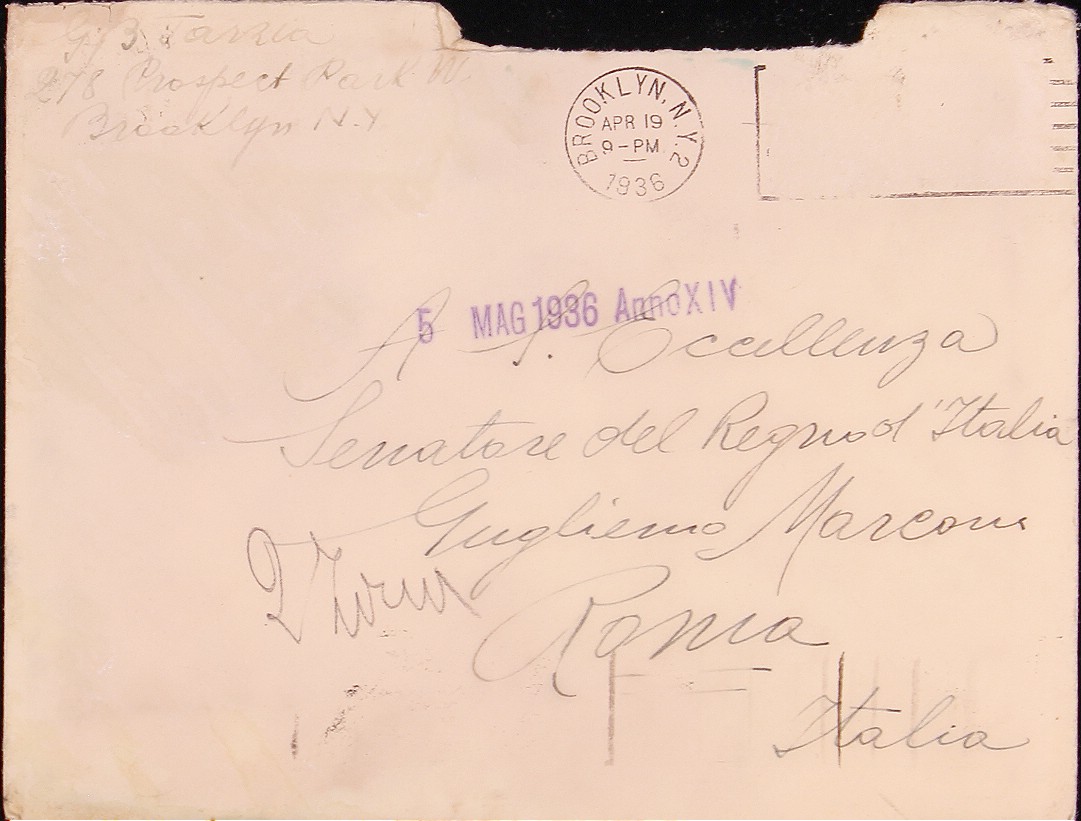 G/B Tarzia
278 Prospect Park W.
Brooklyn N.Y
BROOKLYN, N.Y. 2
APR 19
9-PM
1936
5 MAG 1936 Anno XIV
A S. Eccellenza
Senatore del Regno d'Italia
Guglielmo Marconi
Roma
Italia